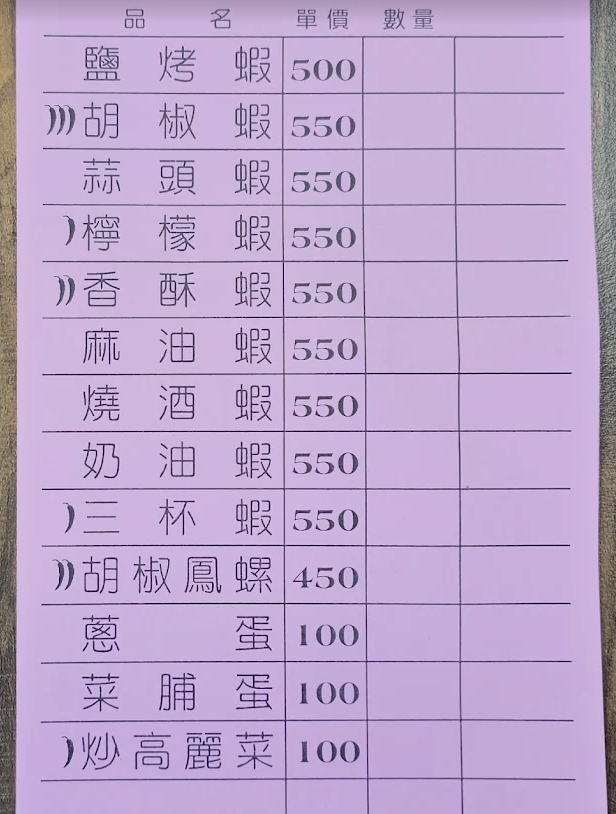 品名 單價 數量
鹽烤蝦 500
胡椒蝦 550
蒜頭蝦 550
檸檬蝦 550
香酥蝦 550
麻油蝦 550
燒酒蝦 550
奶油蝦 550
三杯蝦 550
胡椒鳳螺 450
蔥蛋 100
菜脯蛋 100
炒高麗菜 100